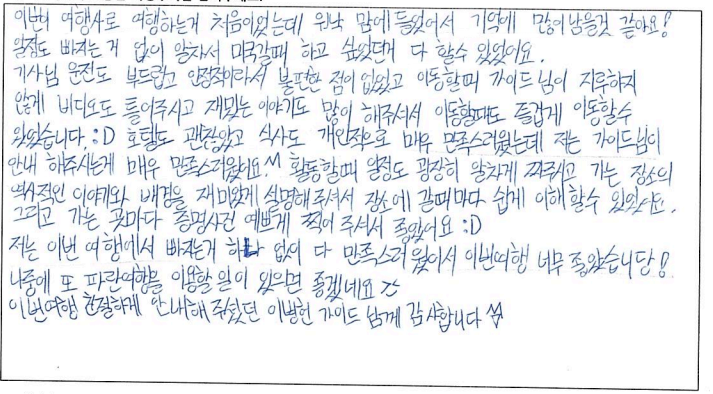 이번 여행사로 여행하는게 처음이었는데 워낙 맘에들었어서 기억에 많이남을것 같아요!
일정도 빠지는 거 없이 알차서 미국갈때 하고 싶었던거 다 할수 있었어요.
기사님 운전도 부드럽고 안정적이라서 불편한 점이 없었고 이동할때 가이드님이 지루하지
않게 비디오도 틀어주시고 재밌는 이야기도 많이 해주셔서 이동할때도 즐겁게 이동할수
있었습니다. :D 호텔도 괜찮았고 식사도 개인적으로 매우 만족스러웠는데 저는 가이드님이
안내 해주시는게 매우 만족스러웠어요!^^ 활동할때 일정도 굉장히 알차게 짜주시고 가는 장소의
역사적인 이야기와 배경을 재미있게 설명해주셔서 장소에 갈때마다 쉽게 이해할수 있었어요.
그리고 가는 곳마다 증명사진 예쁘게 찍어 주셔서 좋았어요 :D
저는 이번 여행에서 빠지는거 하나 없이 다 만족스러웠어서 이번여행 너무 좋았습니당!
나중에 또 파란여행을 이용할일이 있으면 좋겠네요
이번여행 친절하게 안내해 주셨던 이병헌 가이드 님께 감사합니다